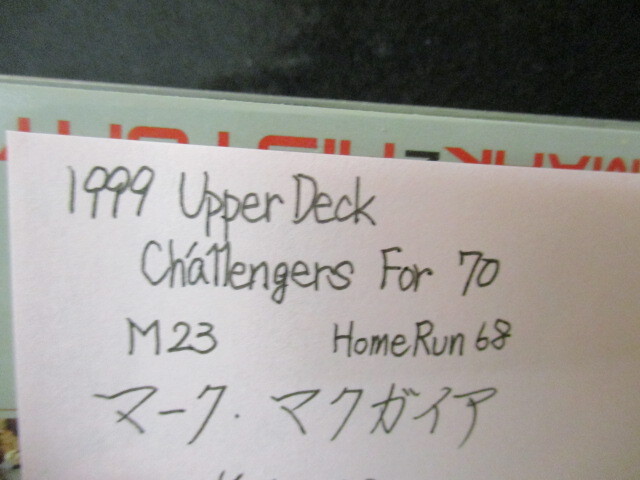 1999 Upper Deck
Challengers For 70
M23 HomeRun 68
マーク・マクガイア